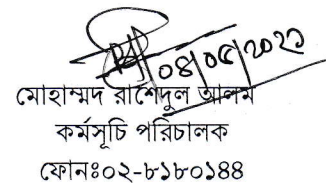 ০৪/০৫/২০২১
মোহাম্মদ রাশেদুল আলম
কর্মসূচি পরিচালক
ফোনঃ০২-৮১৮০১৪৪